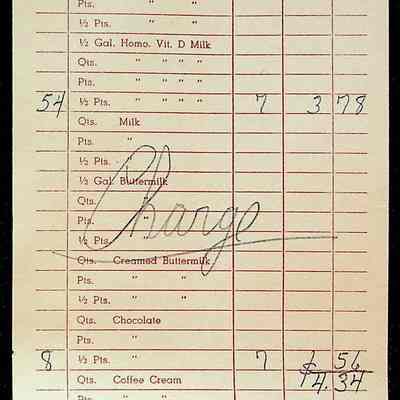 Pts. " "
½ Pts. " "
½ Gal. Homo. Vit. D Milk
Qts. " " " "
Pts. " " " "
54 ½ Pts. " " " " 7 3 78
Qts. Milk
Pts. "
½ Pts. "
½ Gal. Buttermilk
Qts. "
Pts. "
Charge
½ Pts. "
Qts. Creamed Buttermilk
Pts. " "
½ Pts. " "
Qts. Chocolate
8 ½ Pts. " 7 56
Qts. Coffee Cream $4.34
Pts. " "